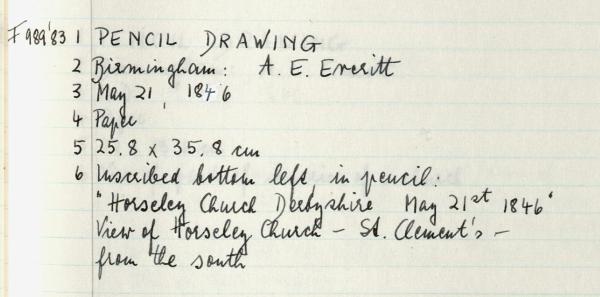 F 989'83 1 PENCIL DRAWING
2 Birmingham: A. E. Everitt
3 May 21, 1846
4 Paper
5 25.8 x 35.8 cm
6 Inscribed bottom left in pencil:
"Horseley Church Derbyshire May 21st 1846"
View of Horseley Church – St. Clement's –
from the south